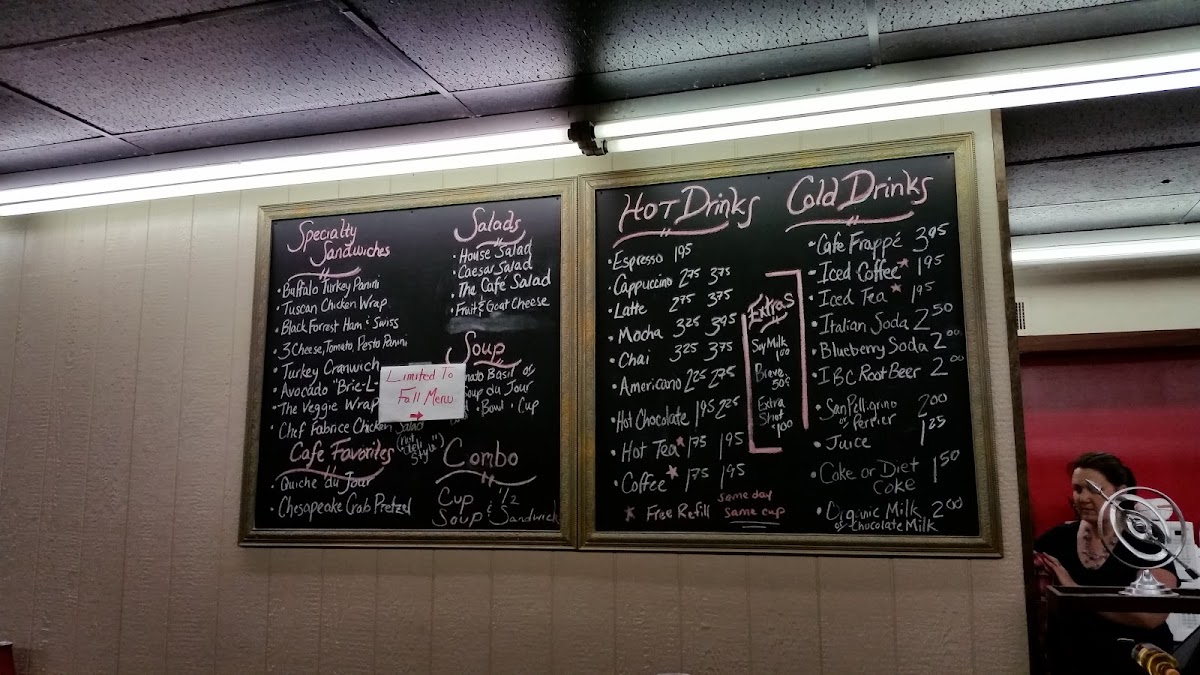 Specialty
Sandwiches
• Buffalo Turkey Panini
• Tuscan Chicken Wrap
• Black Forrest Ham & Swiss
• 3 Cheese, Tomato, Pesto Panini
• Turkey Cranwich
• Avocado "Brie-L-
• The Veggie Wrap
• Chef Fabrice Chicken Salad
(not deli
style")
Cafe Favorites
• Quiche du Jour
• Chesapeake Crab Pretzel
Salads
• House Salad
• Caesar Salad
• The Café Salad
• Fruit & Goat Cheese
Soup
mato Basil or
Soup du Jour
• Bowl • Cup
Limited To
Fall Menu
→
Combo
Cup 1/2
Soup & Sandwich
Hot Drinks
• Espresso 1.95
• Cappuccino 2.75 3.75
• Latte 2.75 3.75
• Mocha 3.25 3.95
• Chai 3.25 3.75
• Americano 2.25 2.75
• Hot Chocolate 1.95 2.25
• Hot Tea* 1.75 1.95
• Coffee* 1.75 1.95
* Free Refill same day
same cup
Extras
Soy Milk
1.00
Breve
50¢
Extra
Shot
$1.00
Cold Drinks
• Cafe Frappé 3.95
• Iced Coffee* 1.95
• Iced Tea* 1.95
• Italian Soda 2.50
• Blueberry Soda 2.00
• IBC Root Beer 2.00
• San Pelligrino 2.00
or Perrier
• Juice 1.25
• Coke or Diet 1.50
Coke
• Organic Milk 2.00
or Chocolate Milk